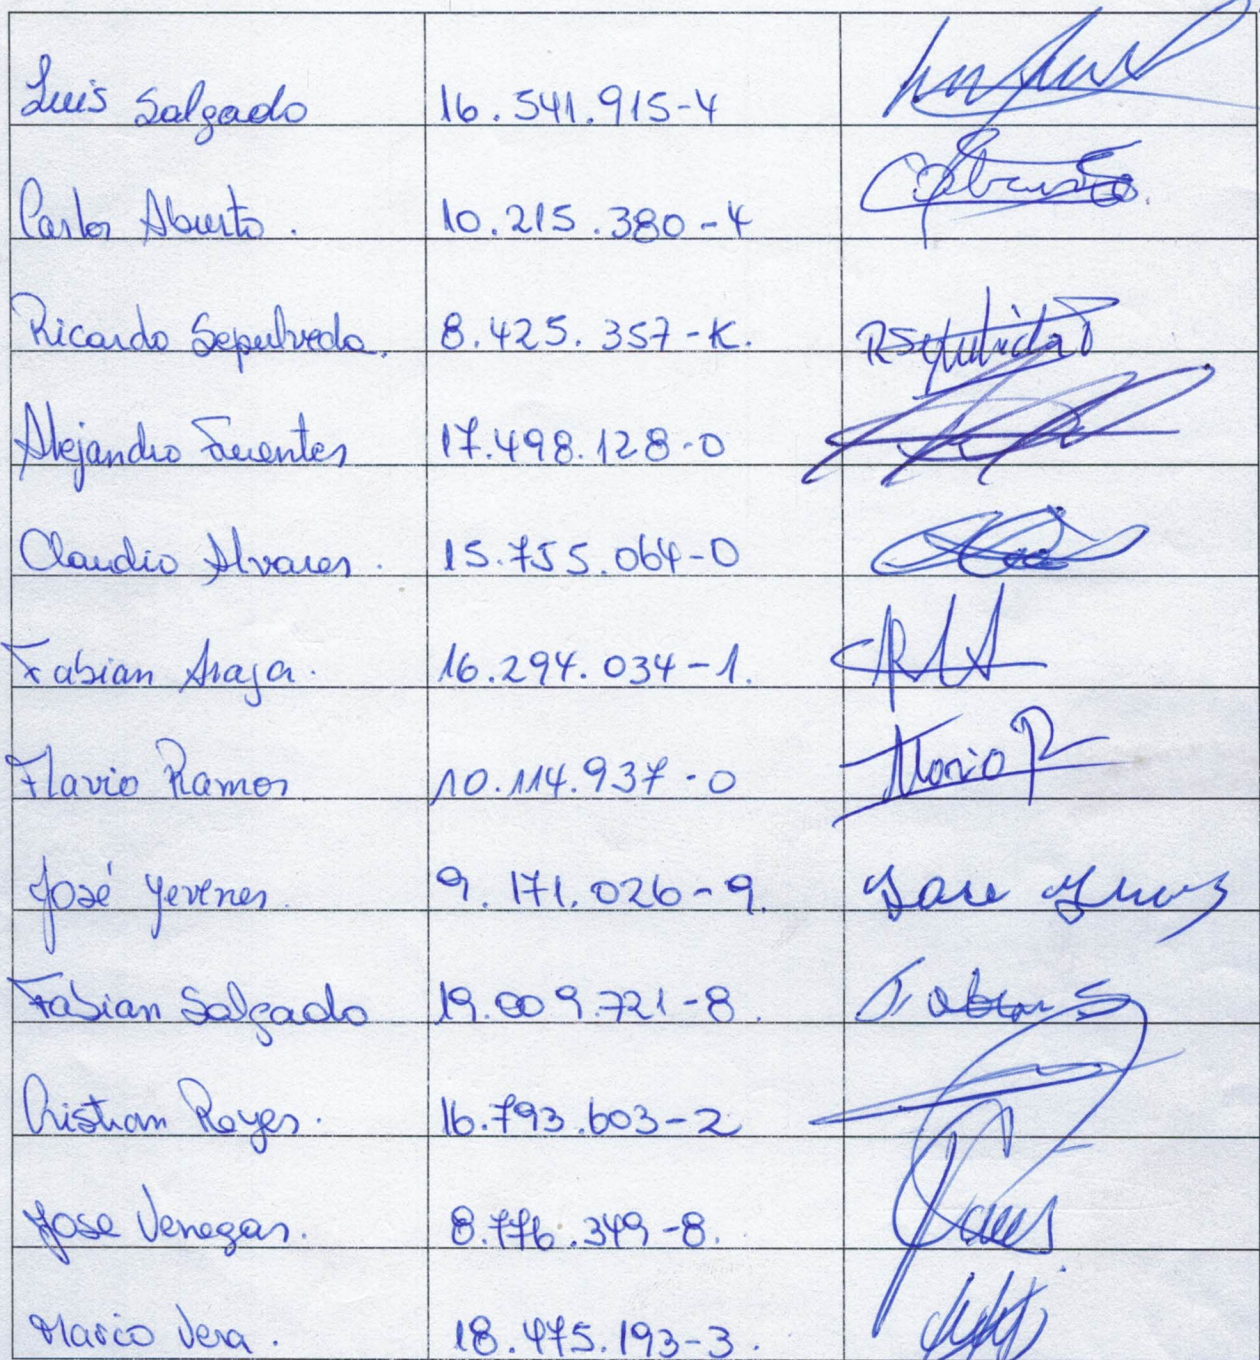 Luis Salgado 16.541.915-4
Carlos Aburto. 10.215.380-4
Ricardo Sepulveda. 8.425.357-K. RSepulveda
Alejandro Fuentes 17.498.128-0
Claudio Alvares. 15.755.064-0
Fabian Araya. 16.294.034-1.
Flavio Ramos 10.114.937-0
José Yevenes. 9.171.026-9. Jose
Fabian Salgado 19.009.721-8. Fabian S
Cristian Reyes. 16.793.603-2
Jose Venegas. 8.776.349-8.
Mario Vera. 18.475.193-3.